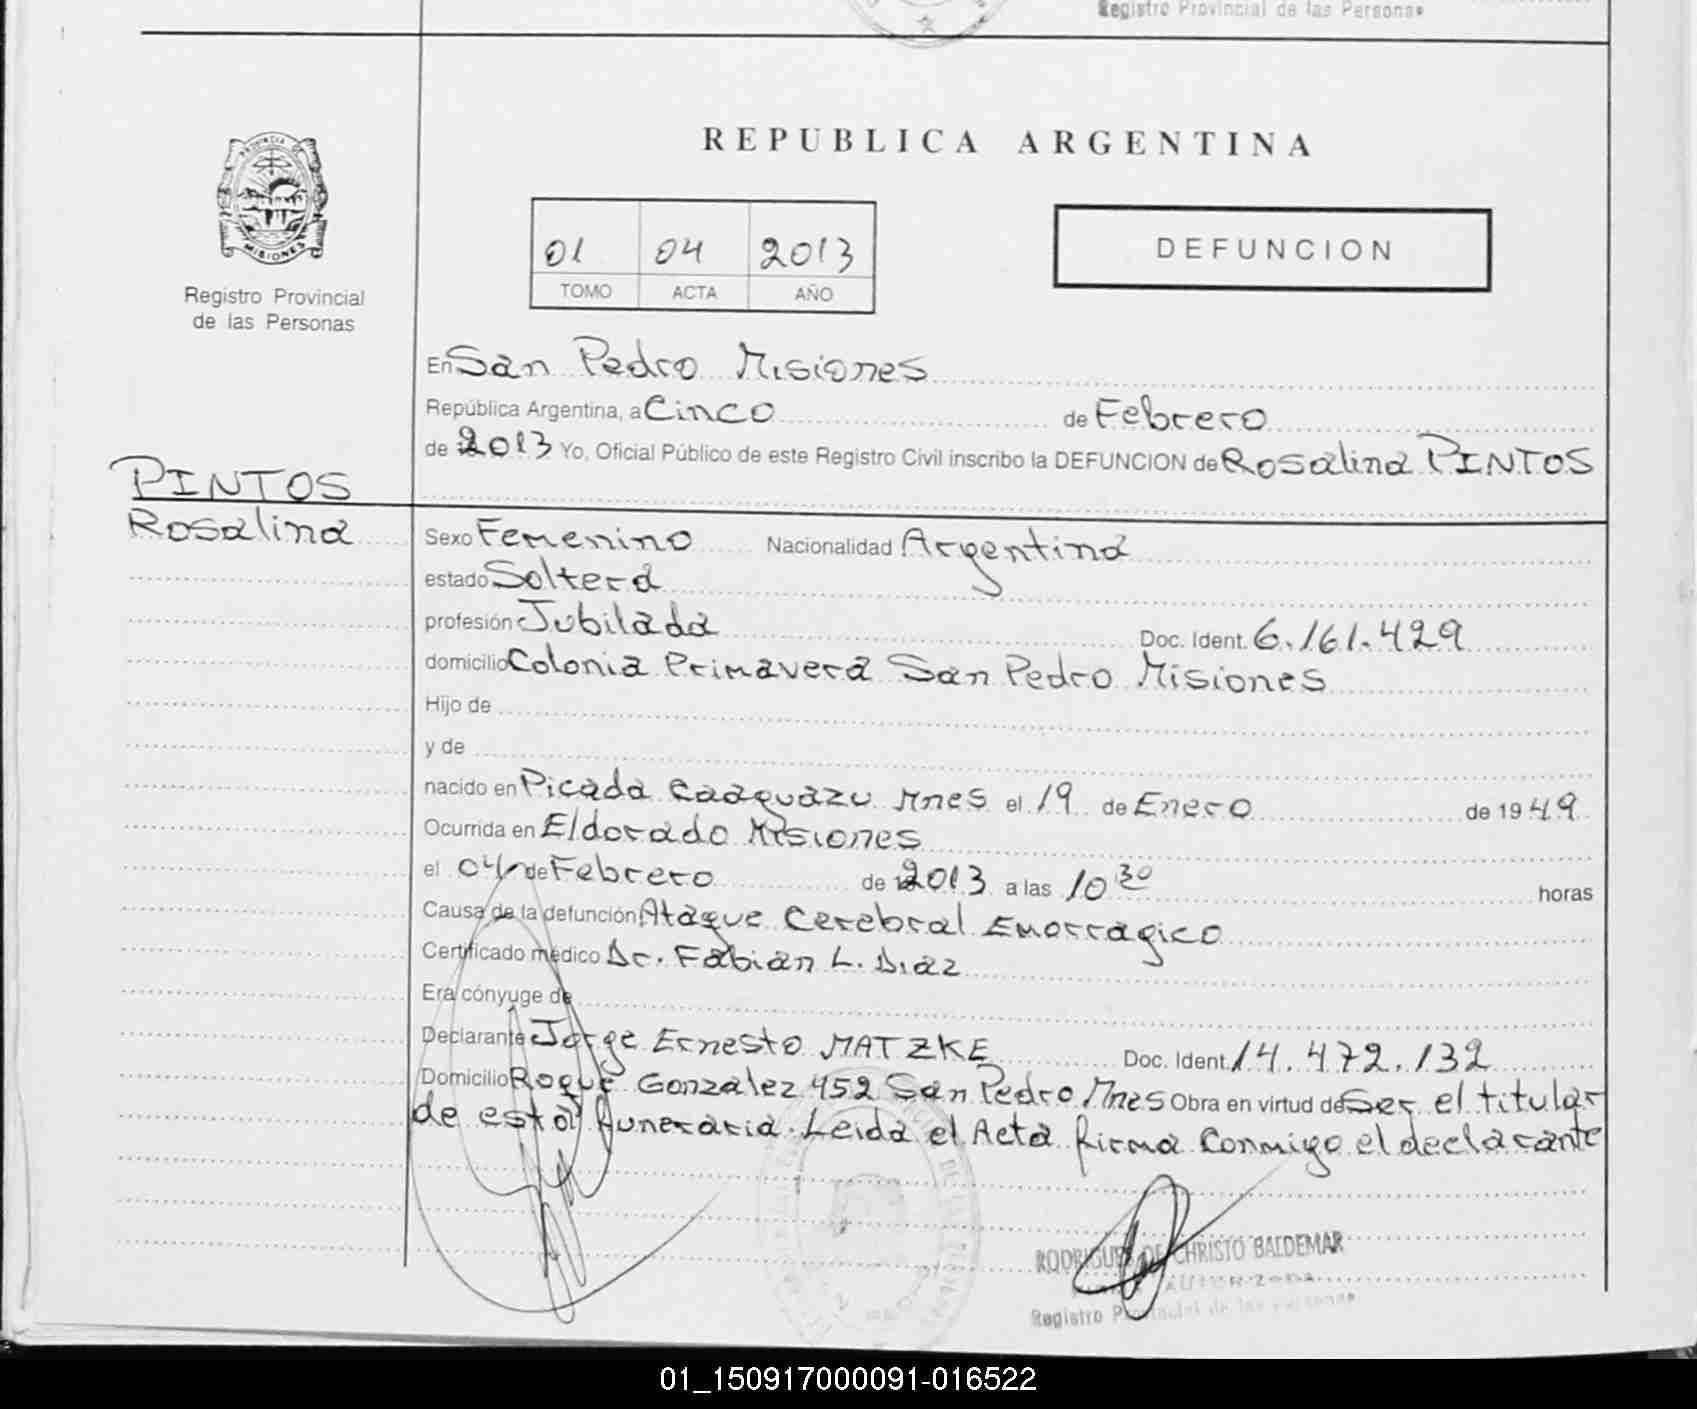 Registro Provincial de las Personas
REPUBLICA ARGENTINA
PROVINCIA DE
MISIONES
Registro Provincial
de las Personas
01 04 2013
TOMO ACTA AÑO
DEFUNCION
En San Pedro Misiones
República Argentina, a Cinco de Febrero
de 2013 Yo, Oficial Público de este Registro Civil inscribo la DEFUNCION de Rosalina PINTOS
PINTOS
Rosalina
Sexo Femenino Nacionalidad Argentina
estado Soltera
profesión Jubilada Doc. Ident. 6.161.429
domicilio Colonia Primavera San Pedro Misiones
Hijo de
y de
nacido en Picada Caaguazu Mnes el 19 de Enero de 1949
Ocurrida en Eldorado Misiones
el 04 de Febrero de 2013 a las 10 30 horas
Causa de la defunción Ataque Cerebral Emorragico
Certificado médico Dr. Fabian L. Diaz
Era cónyuge de
Declarante Jorge Ernesto MATZKE Doc. Ident. 14.472.132
Domicilio Roque Gonzalez 452 San Pedro Mnes Obra en virtud de Ser el titular
de esta funeraria. Leida el Acta firma Conmigo el declarante
RODRIGUEZ DE CHRISTO BALDEMAR
Registro Provincial de las Personas
01_150917000091-016522